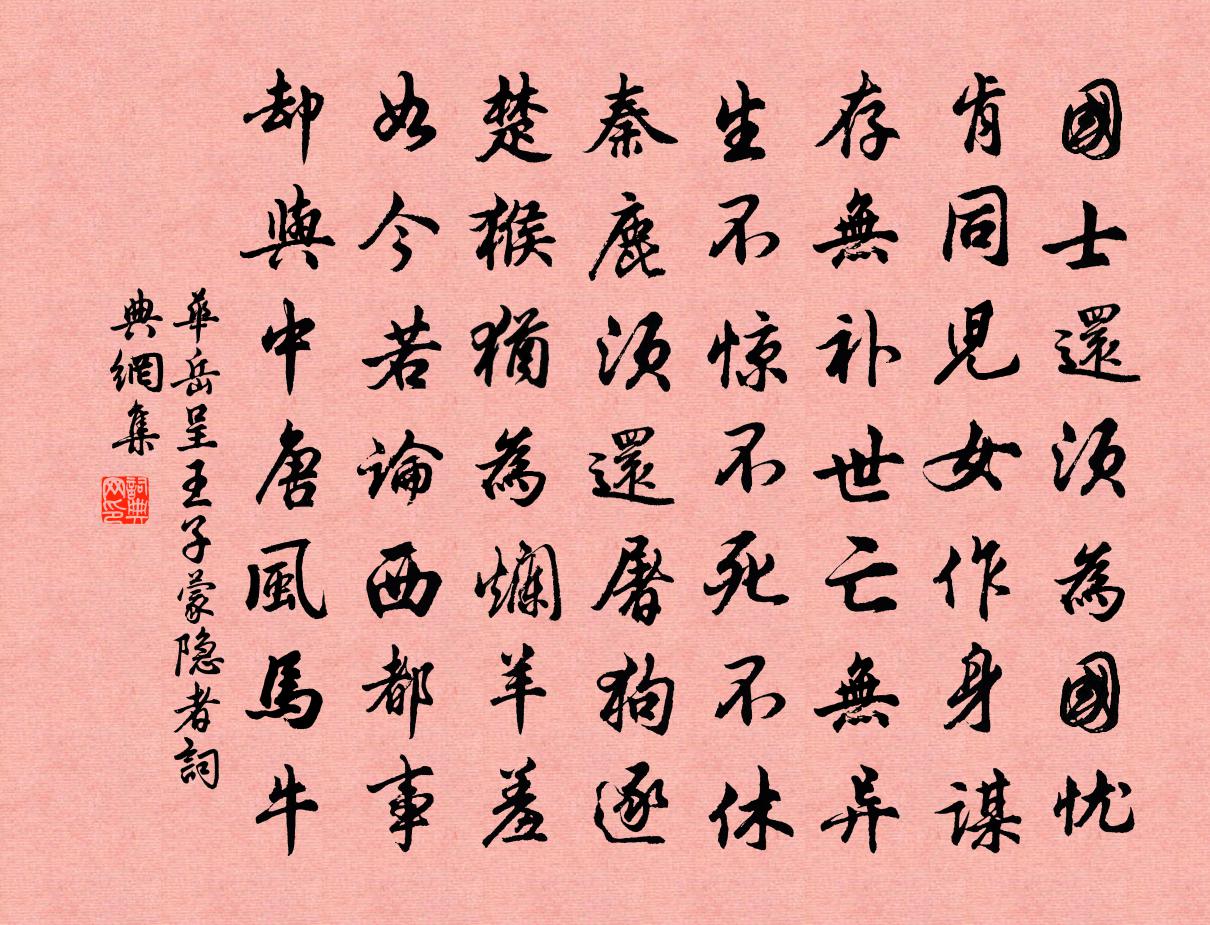 國士還須為國忧
肯同児女作身謀
存無补世亡無异
生不惊不死不休
秦鹿須還屠狗逐
楚猴猶為爛羊羞
如今若論西都事
却與中唐風馬牛
華岳呈王子蒙隐者詞
典網集
詞典
网印